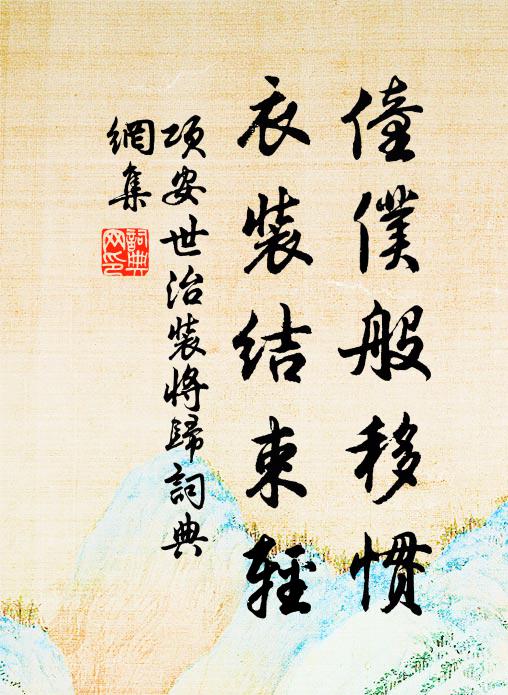 僮僕般移慣
衣裝結束輕
項安世治裝將歸詞典
網集
詞典
网印